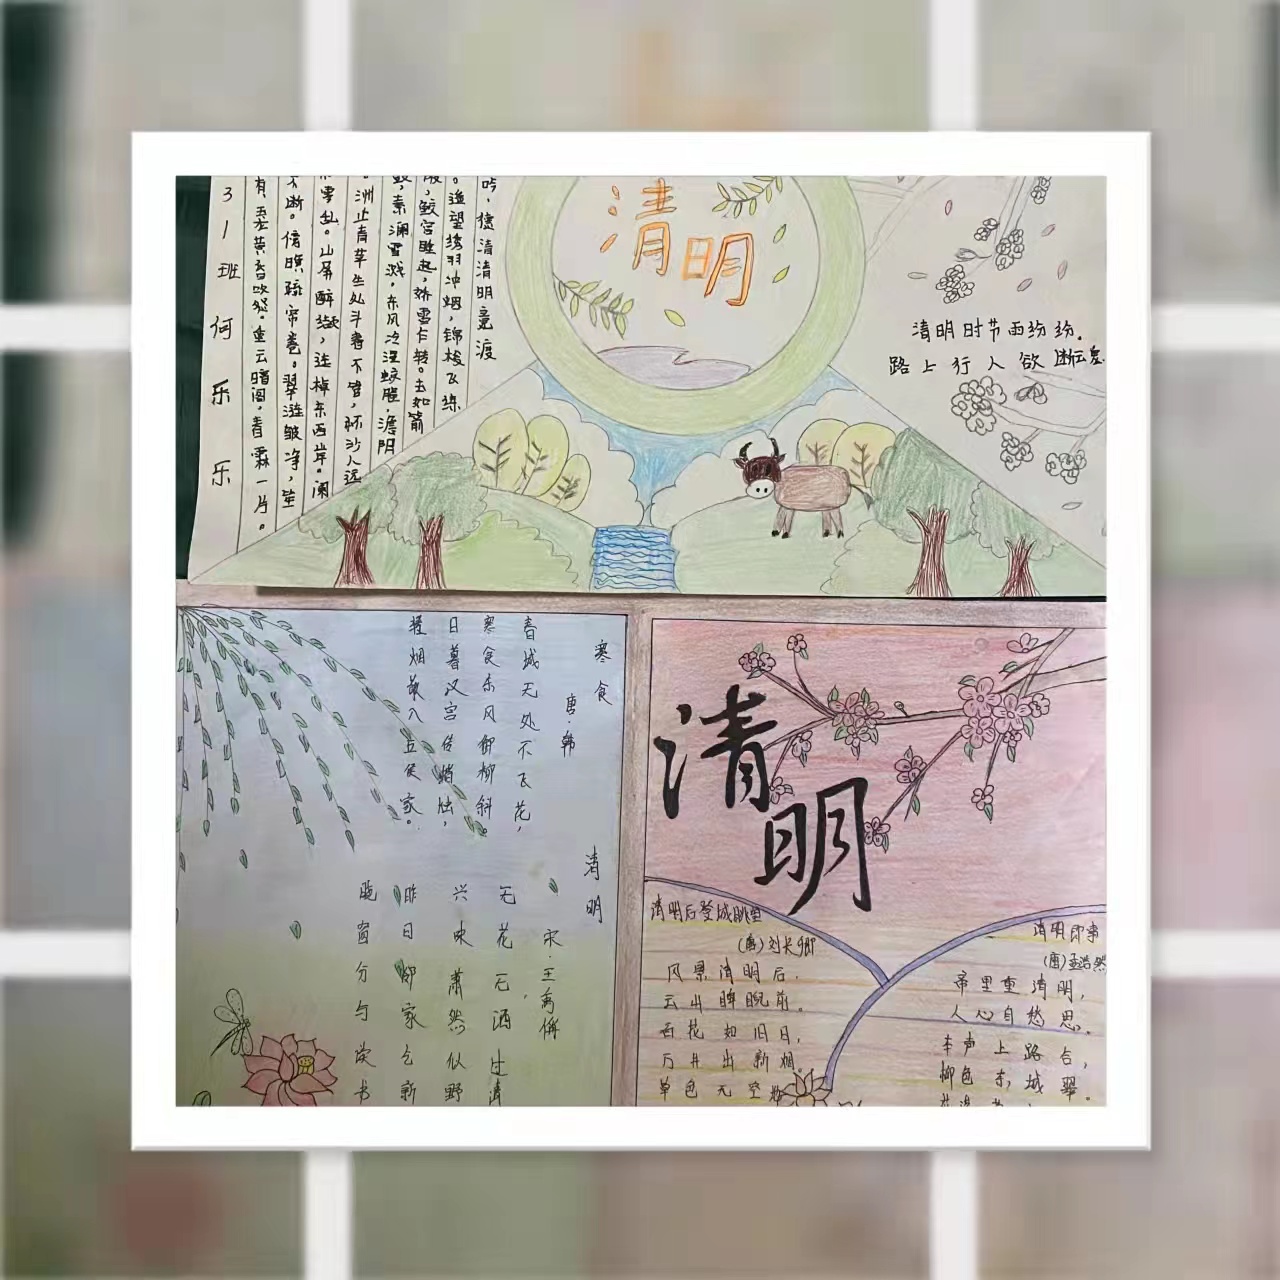 清明
吟，德清清明竞渡
。遥望绣羽冲烟，锦梭飞练
鲛宫胜起，娇雪乍转。去如箭
素澜雪溅，东风冷湿蛟腥，澹阴
。洲上青苹生处斗春不管，怀沙人远
零乱。山屏醉缬，连棹东西岸。阑
不断。倩暝疏帘卷。翠涟皱净，笙
有，丢黄昏吹怨。重云暗阁，春霖一片。
31班何乐乐
清明时节雨纷纷.
路上行人欲断
寒食
唐·韩
春城无处不飞花，
寒食东风御柳斜。
日暮汉宫传蜡烛，
轻烟散入五侯家。
清明
宋·王禹偁
无花无酒过清
兴味萧然似野
昨日邻家乞新
晓窗分与读书
清明
清明后登城眺望
（唐）刘长卿
风景清明后，
云山睥睨前。
百花如旧日，
万井出新烟。
草色无空
清明即事
（唐）孟浩然
帝里重清明，
人心自愁思。
车声上路合，
柳色东城翠。